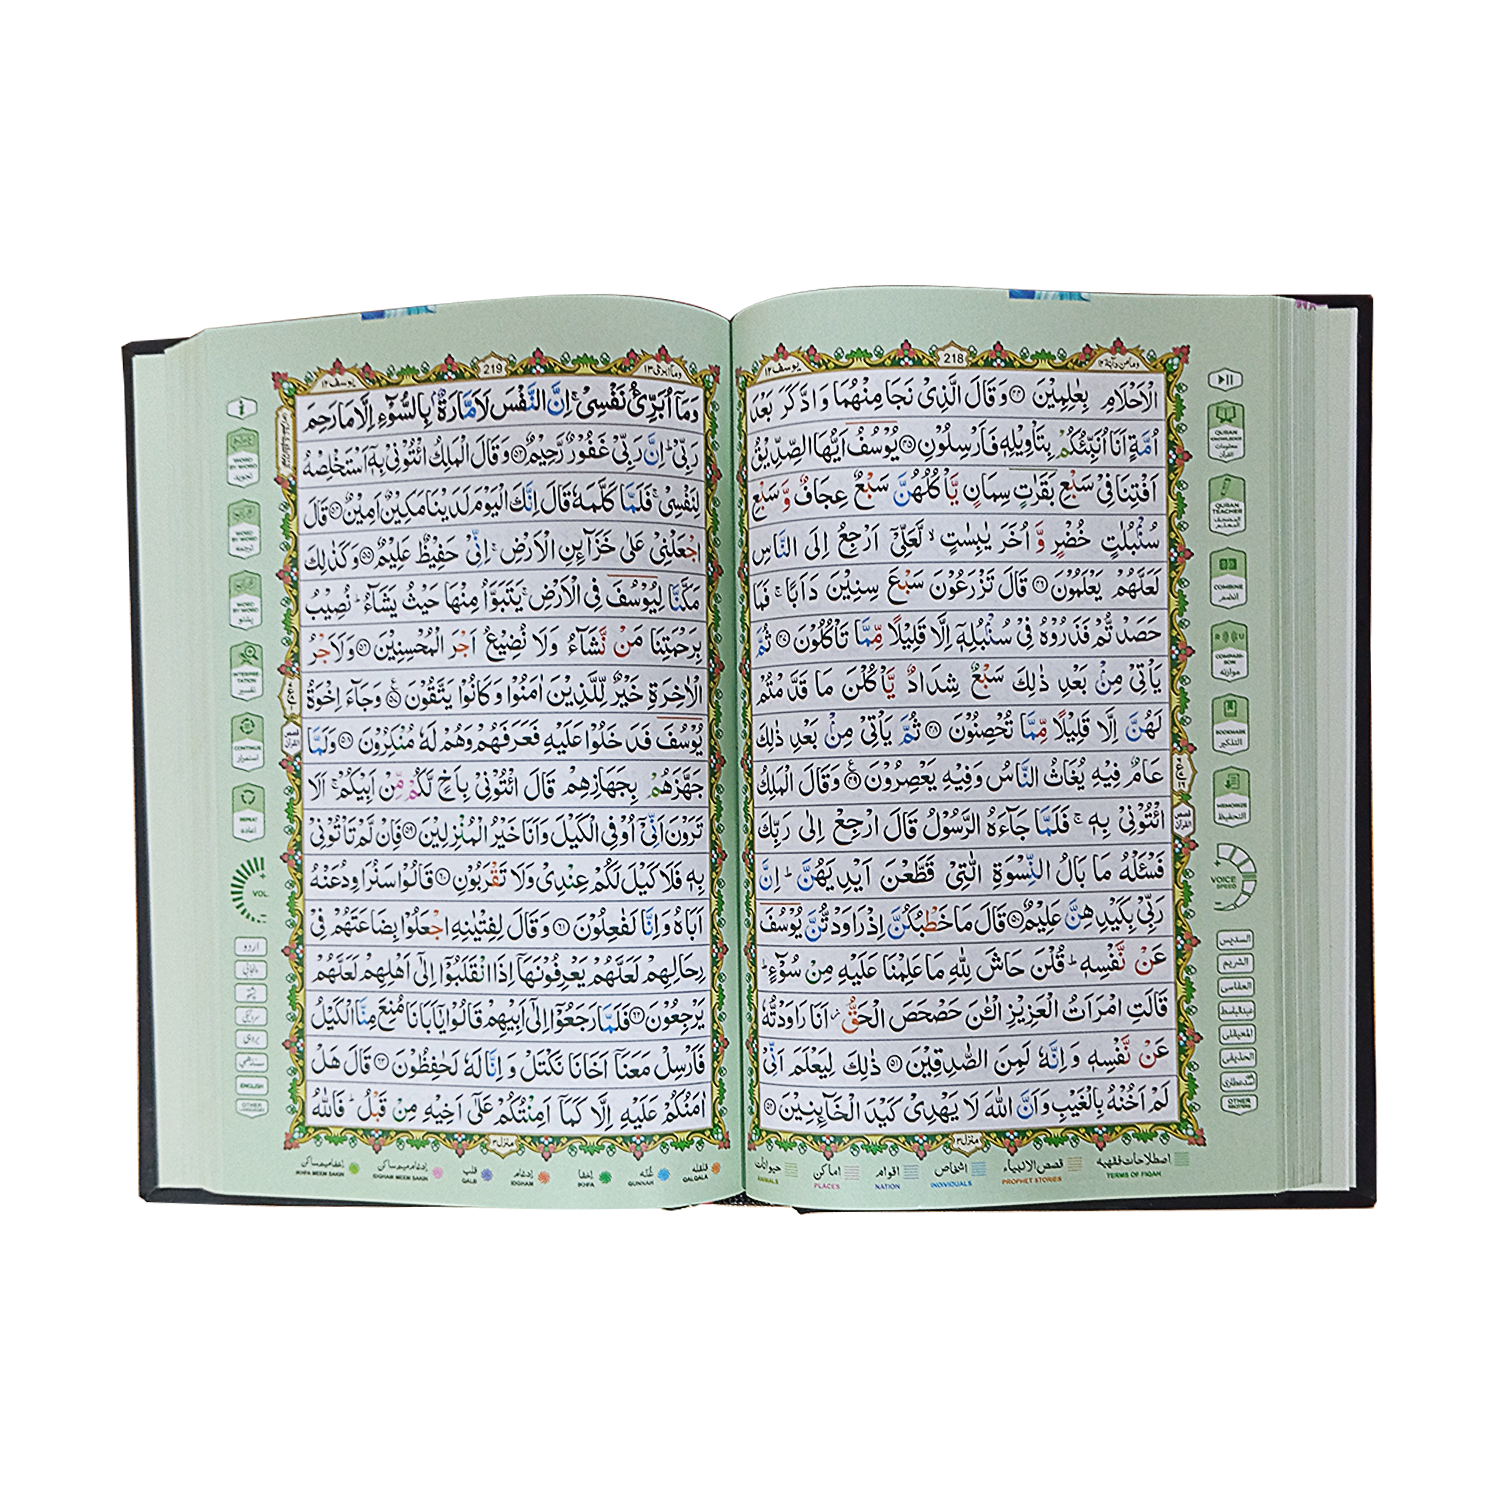 وما من دآبة ١٢
218
يوسف ١٢
الْاَحْلَامِ بِعٰلِمِيْنَ ﴿۴۴﴾ وَقَالَ الَّذِيْ نَجَا مِنْهُمَا وَادَّكَرَ بَعْدَ
اُمَّةٍ اَنَا اُنَبِّئُكُمْ بِتَاْوِيْلِهٖ فَاَرْسِلُوْنِ ﴿۴۵﴾ يُوْسُفُ اَيُّهَا الصِّدِّيْقُ
اَفْتِنَا فِيْ سَبْعِ بَقَرٰتٍ سِمَانٍ يَّاْكُلُهُنَّ سَبْعٌ عِجَافٌ وَّسَبْعِ
سُنْۢبُلٰتٍ خُضْرٍ وَّاُخَرَ يٰبِسٰتٍ ۙ لَّعَلِّيْٓ اَرْجِعُ اِلَى النَّاسِ
لَعَلَّهُمْ يَعْلَمُوْنَ ﴿۴۶﴾ قَالَ تَزْرَعُوْنَ سَبْعَ سِنِيْنَ دَاَبًا ۚ فَمَا
حَصَدْتُّمْ فَذَرُوْهُ فِيْ سُنْۢبُلِهٖٓ اِلَّا قَلِيْلًا مِّمَّا تَاْكُلُوْنَ ﴿۴۷﴾ ثُمَّ
يَاْتِيْ مِنْۢ بَعْدِ ذٰلِكَ سَبْعٌ شِدَادٌ يَّاْكُلْنَ مَا قَدَّمْتُمْ
لَهُنَّ اِلَّا قَلِيْلًا مِّمَّا تُحْصِنُوْنَ ﴿۴۸﴾ ثُمَّ يَاْتِيْ مِنْۢ بَعْدِ ذٰلِكَ
عَامٌ فِيْهِ يُغَاثُ النَّاسُ وَفِيْهِ يَعْصِرُوْنَ ﴿۴۹﴾ وَقَالَ الْمَلِكُ
ائْتُوْنِيْ بِهٖ ۚ فَلَمَّا جَآءَهُ الرَّسُوْلُ قَالَ ارْجِعْ اِلٰى رَبِّكَ
فَسْئَلْهُ مَا بَالُ النِّسْوَةِ الّٰتِيْ قَطَّعْنَ اَيْدِيَهُنَّ ؕ اِنَّ
رَبِّيْ بِكَيْدِهِنَّ عَلِيْمٌ ﴿۵۰﴾ قَالَ مَا خَطْبُكُنَّ اِذْ رَاوَدْتُّنَّ يُوْسُفَ
عَنْ نَّفْسِهٖ ؕ قُلْنَ حَاشَ لِلّٰهِ مَا عَلِمْنَا عَلَيْهِ مِنْ سُوْٓءٍ ؕ
قَالَتِ امْرَاَتُ الْعَزِيْزِ الْـٰٔنَ حَصْحَصَ الْحَقُّ ؗ اَنَا رَاوَدْتُّهٗ
عَنْ نَّفْسِهٖ وَاِنَّهٗ لَمِنَ الصّٰدِقِيْنَ ﴿۵۱﴾ ذٰلِكَ لِيَعْلَمَ اَنِّيْ
لَمْ اَخُنْهُ بِالْغَيْبِ وَاَنَّ اللّٰهَ لَا يَهْدِيْ كَيْدَ الْخَآئِنِيْنَ ﴿۵۲﴾
منزل ٣
اصطلاحات فقهيه قصص الانبياء اشخاص اقوام اماكن حيوانات
TERMS OF FIQAH PROPHET STORIES INDIVIDUALS NATION PLACES ANIMALS
QURAN KNOWLEDGE
معلومات القرآن
QURAN TEACHER
المصحف المعلم
COMBINE
انضم
COMPARISON
موازنه
BOOKMARK
التفكير
MEMORIZE
التحفيظ
VOICE SPEED
السديس
الشريم
العفاسي
عبدالباسط
المعيقلي
الحذيفي
سعد غامدي
OTHER RECITERS
قصص القرآن
وما ابرئ ١٣
219
يوسف ١٢
وَمَآ اُبَرِّئُ نَفْسِيْ ۚ اِنَّ النَّفْسَ لَاَمَّارَةٌۢ بِالسُّوْٓءِ اِلَّا مَا رَحِمَ
رَبِّيْ ؕ اِنَّ رَبِّيْ غَفُوْرٌ رَّحِيْمٌ ﴿۵۳﴾ وَقَالَ الْمَلِكُ ائْتُوْنِيْ بِهٖٓ اَسْتَخْلِصْهُ
لِنَفْسِيْ ۚ فَلَمَّا كَلَّمَهٗ قَالَ اِنَّكَ الْيَوْمَ لَدَيْنَا مَكِيْنٌ اَمِيْنٌ ﴿۵۴﴾ قَالَ
اجْعَلْنِيْ عَلٰى خَزَآئِنِ الْاَرْضِ ۚ اِنِّيْ حَفِيْظٌ عَلِيْمٌ ﴿۵۵﴾ وَكَذٰلِكَ
مَكَّنَّا لِيُوْسُفَ فِي الْاَرْضِ ۚ يَتَبَوَّاُ مِنْهَا حَيْثُ يَشَآءُ ؕ نُصِيْبُ
بِرَحْمَتِنَا مَنْ نَّشَآءُ وَلَا نُضِيْعُ اَجْرَ الْمُحْسِنِيْنَ ﴿۵۶﴾ وَلَاَجْرُ
الْاٰخِرَةِ خَيْرٌ لِّلَّذِيْنَ اٰمَنُوْا وَكَانُوْا يَتَّقُوْنَ ﴿۵۷﴾ وَجَآءَ اِخْوَةُ
يُوْسُفَ فَدَخَلُوْا عَلَيْهِ فَعَرَفَهُمْ وَهُمْ لَهٗ مُنْكِرُوْنَ ﴿۵۸﴾ وَلَمَّا
جَهَّزَهُمْ بِجَهَازِهِمْ قَالَ ائْتُوْنِيْ بِاَخٍ لَّكُمْ مِّنْ اَبِيْكُمْ ۚ اَلَا
تَرَوْنَ اَنِّيْٓ اُوْفِي الْكَيْلَ وَاَنَا خَيْرُ الْمُنْزِلِيْنَ ﴿۵۹﴾ فَاِنْ لَّمْ تَاْتُوْنِيْ
بِهٖ فَلَا كَيْلَ لَكُمْ عِنْدِيْ وَلَا تَقْرَبُوْنِ ﴿۶۰﴾ قَالُوْا سَنُرَاوِدُ عَنْهُ
اَبَاهُ وَاِنَّا لَفٰعِلُوْنَ ﴿۶۱﴾ وَقَالَ لِفِتْيٰنِهِ اجْعَلُوْا بِضَاعَتَهُمْ فِيْ
رِحَالِهِمْ لَعَلَّهُمْ يَعْرِفُوْنَهَآ اِذَا انْقَلَبُوْٓا اِلٰٓى اَهْلِهِمْ لَعَلَّهُمْ
يَرْجِعُوْنَ ﴿۶۲﴾ فَلَمَّا رَجَعُوْٓا اِلٰٓى اَبِيْهِمْ قَالُوْا يٰٓاَبَانَا مُنِعَ مِنَّا الْكَيْلُ
فَاَرْسِلْ مَعَنَآ اَخَانَا نَكْتَلْ وَاِنَّا لَهٗ لَحٰفِظُوْنَ ﴿۶۳﴾ قَالَ هَلْ
اٰمَنُكُمْ عَلَيْهِ اِلَّا كَمَآ اَمِنْتُكُمْ عَلٰٓى اَخِيْهِ مِنْ قَبْلُ ؕ فَاللّٰهُ
منزل ٣
قلقله غنّه اخفا ادغام قلب ادغام ميم ساكن اخفا ميم ساكن
QALQALA GUNNAH IKHFA IDGHAM QALB IDGHAM MEEM SAKIN IKHFA MEEM SAKIN
WORD BY WORD
تجويد
WORD BY WORD
ترجمه
WORD BY WORD
پشتو
INTERPRETATION
تفسير
CONTINUE
استمرار
REPEAT
اعاده
VOL
اردو
پنجابي
پشتو
سرائيكي
بروہی
سندھی
ENGLISH
OTHER LANGUAGES
قصص القرآن